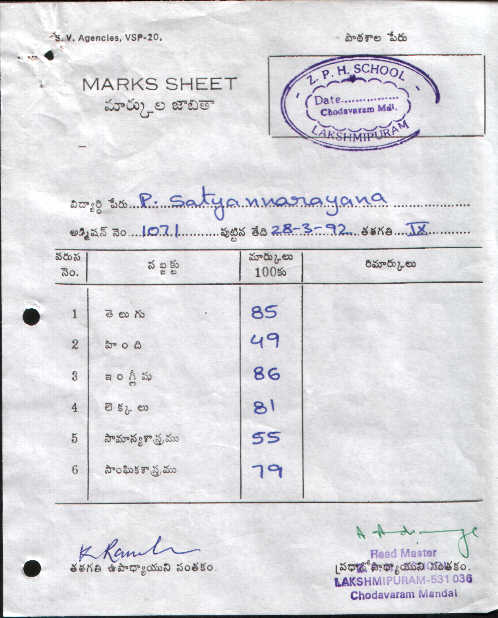 S. V. Agencies, VSP-20.
పాఠశాల పేరు
Z. P. H. SCHOOL
Date................
Chodavaram Mdl.
LAKSHMIPURAM
MARKS SHEET
మార్కుల జాబితా
విద్యార్థి పేరు P. Satyannarayana
అడ్మిషన్ నెం 1071 పుట్టిన తేది 28-3-92 తరగతి IX
వరుస నెం. సబ్జక్టు మార్కులు 100కు రిమార్కులు
1 తెలుగు 85
2 హింది 49
3 ఇంగ్లీషు 86
4 లెక్కలు 81
5 సామాన్యశాస్త్రము 55
6 సాంఘికశాస్త్రము 79
తరగతి ఉపాధ్యాయుని సంతకం.
Head Master
ప్రధానోపాధ్యాయుని సంతకం.
LAKSHMIPURAM-531 036
Chodavaram Mandal